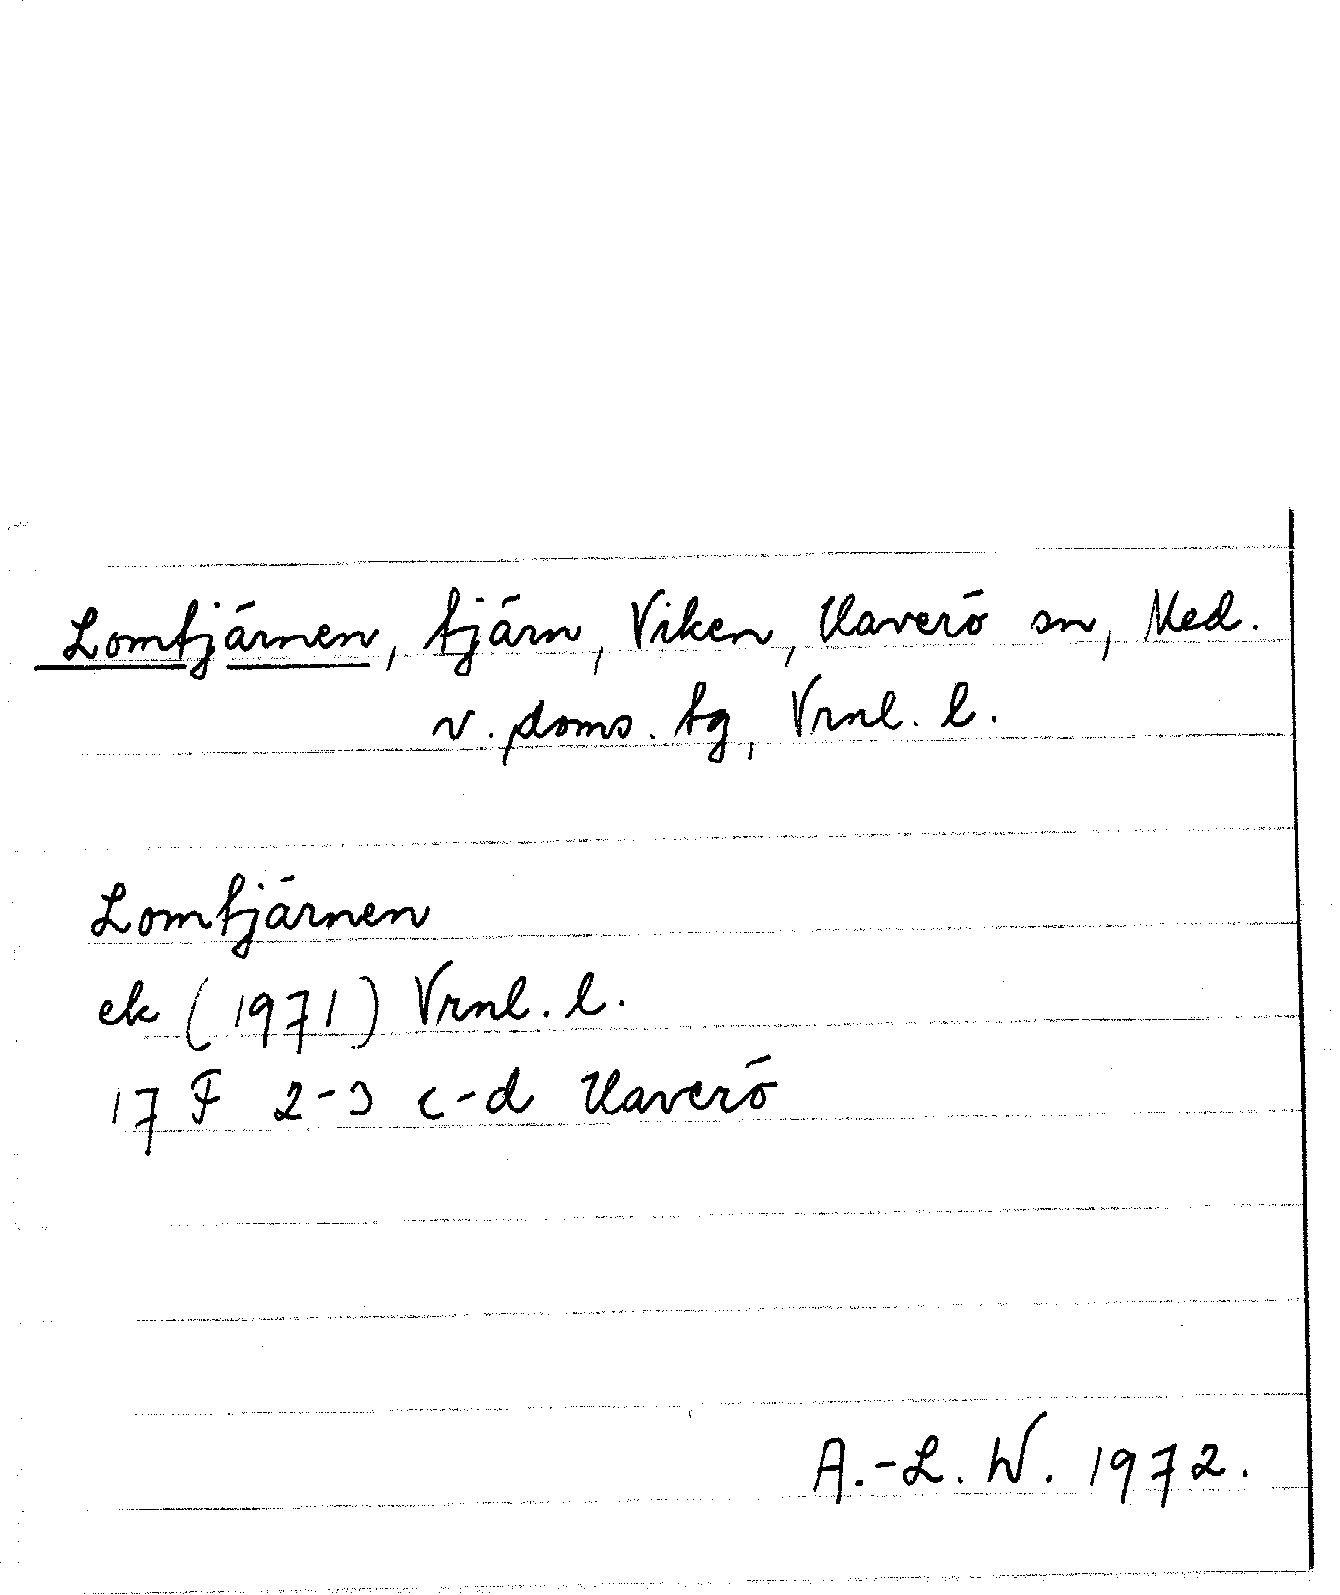 Lomtjärnen, tjärn, Viken, Haverö sn, Med.
v. doms. tg, Vrnl. l.
Lomtjärnen
ek (1971) Vrnl. l.
17 F 2-3 c-d Haverö
A.-L. W. 1972.